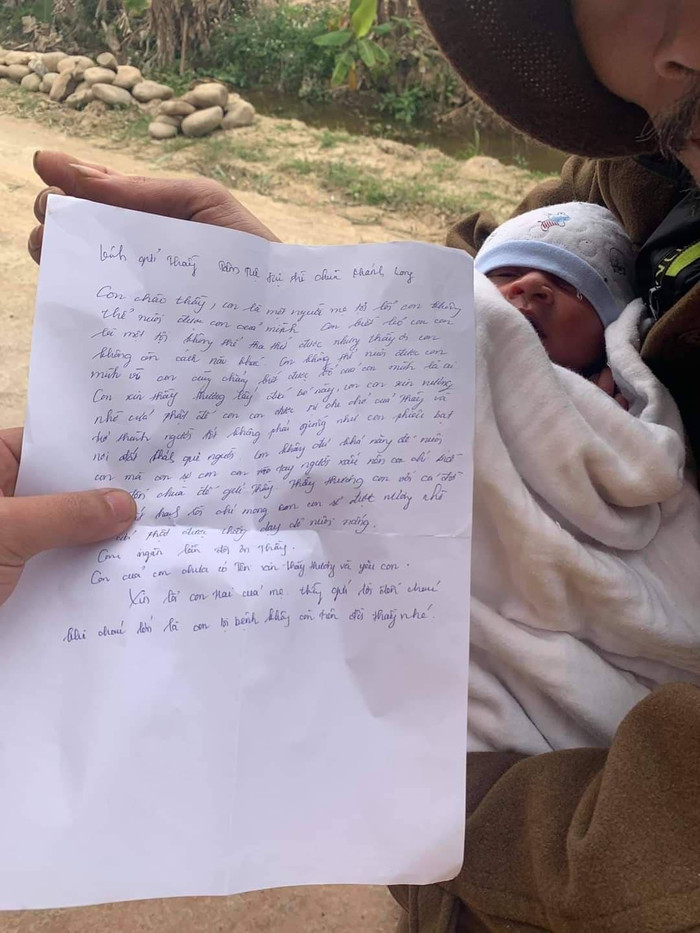 Kính gửi Thầy Tâm Tuệ trụ trì chùa Khánh Long
Con chào thầy, con là một người mẹ tội lỗi con không
thể nuôi được con của mình con biết bỏ con con
là một tội không thể tha thứ được nhưng thầy ơi con
không còn cách nào khác con không thể nuôi được con
mình và con cũng chẳng biết được bố của con mình là ai
Con xin thầy thương lấy đứa bé này, con con xin nương
nhờ cửa phật để con con được sự che chở của Thầy và
trở thành người tốt không phải giống như con phiêu bạt
nơi đất khách quê người Con không đủ khả năng để nuôi
con mà con sợ con con vào tay người xấu nên con chỉ biết
đến chùa để gửi Thầy Thầy thương con với cả đời
tội chỉ mong con con sẽ được nương nhờ
phật được thầy dạy dỗ nuôi nấng.
Con ngàn lần đội ơn Thầy.
Con của con chưa có Tên xin Thầy thương và yêu con.
Xin lỗi con trai của mẹ. thầy gửi lời đến cháu
khi cháu lớn là con bị bệnh không còn trên đời thầy nhé.